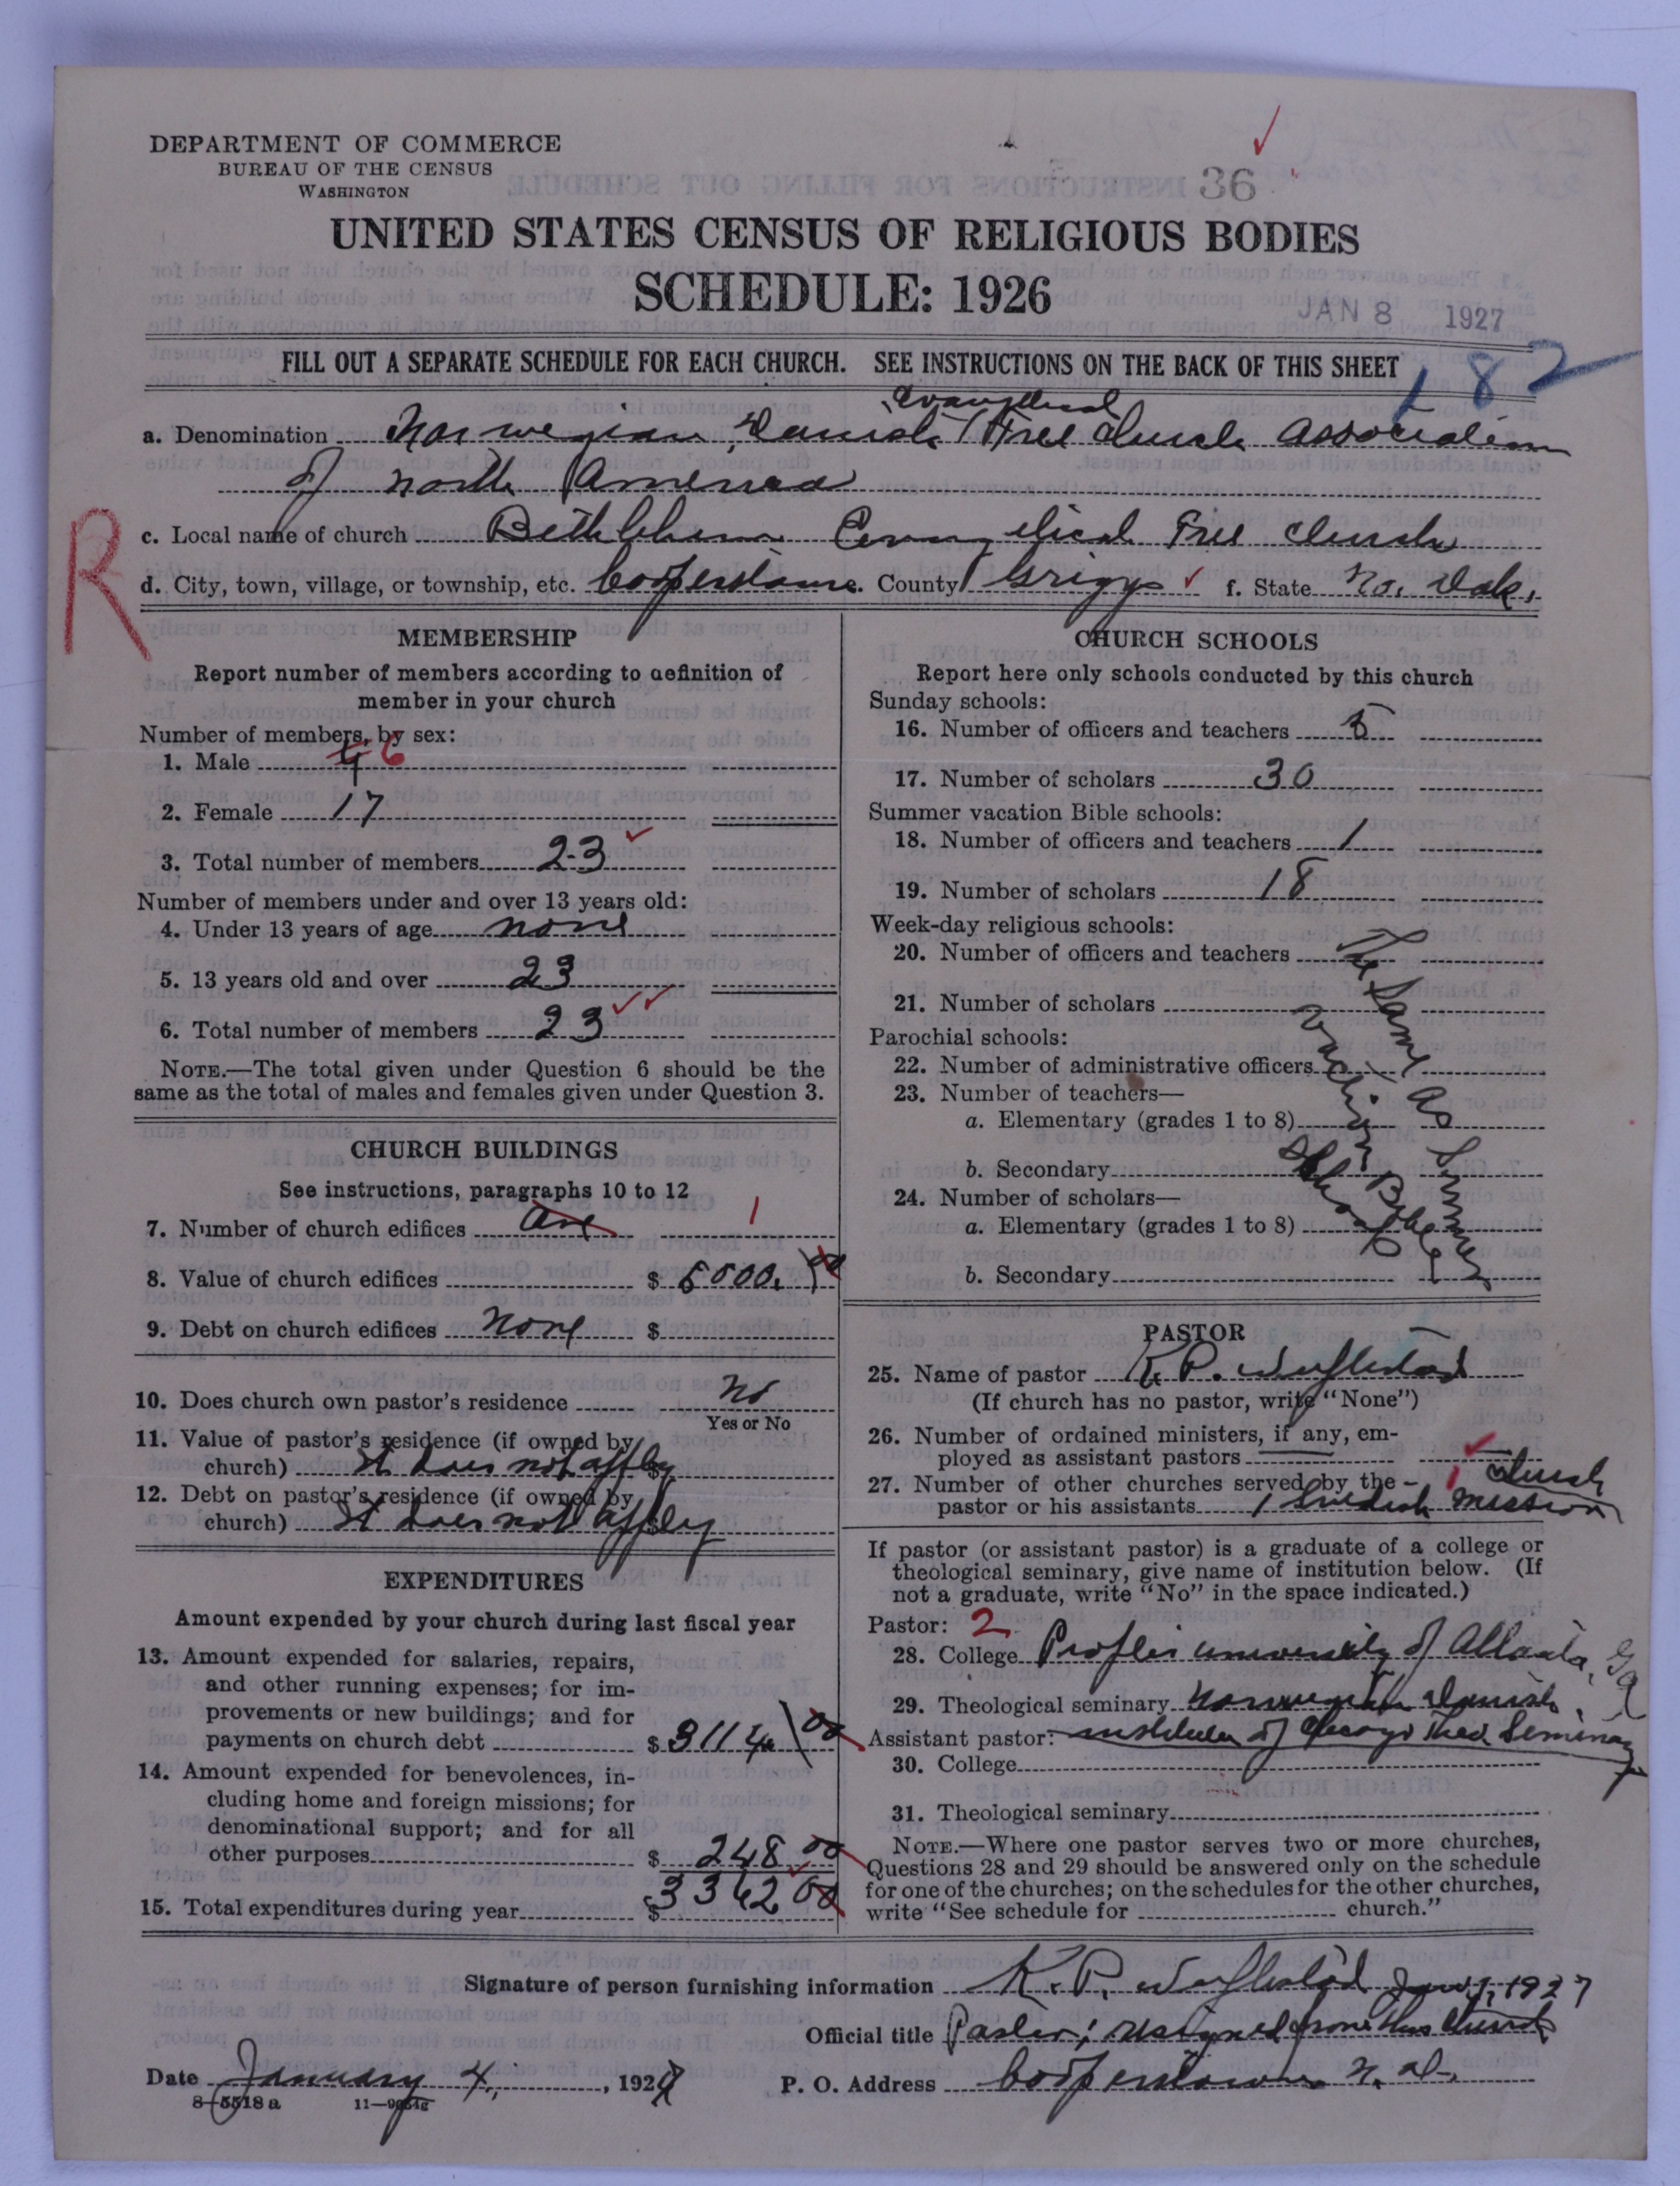 DEPARTMENT OF COMMERCE
BUREAU OF THE CENSUS
WASHINGTON
36
UNITED STATES CENSUS OF RELIGIOUS BODIES
SCHEDULE: 1926
JAN 8 1927
FILL OUT A SEPARATE SCHEDULE FOR EACH CHURCH. SEE INSTRUCTIONS ON THE BACK OF THIS SHEET
182
Evangelical
a. Denomination Norwegian, Danish Free Church Association
of North America
R
c. Local name of church Bethlehem Evangelical Free Church
d. City, town, village, or township, etc. Cooperstown. County Griggs f. State No. Dak.
MEMBERSHIP
Report number of members according to definition of
member in your church
Number of members, by sex:
1. Male 6
2. Female 17
3. Total number of members 23
Number of members under and over 13 years old:
4. Under 13 years of age none
5. 13 years old and over 23
6. Total number of members 23
NOTE.—The total given under Question 6 should be the
same as the total of males and females given under Question 3.
CHURCH BUILDINGS
See instructions, paragraphs 10 to 12
7. Number of church edifices one 1
8. Value of church edifices $ 5000.00
9. Debt on church edifices none $
10. Does church own pastor's residence no
Yes or No
11. Value of pastor's residence (if owned by
church) It does not apply $
12. Debt on pastor's residence (if owned by
church) It does not apply $
EXPENDITURES
Amount expended by your church during last fiscal year
13. Amount expended for salaries, repairs,
and other running expenses; for im-
provements or new buildings; and for
payments on church debt $ 3114 00
14. Amount expended for benevolences, in-
cluding home and foreign missions; for
denominational support; and for all
other purposes $ 248 00
15. Total expenditures during year $ 3362 00
CHURCH SCHOOLS
Report here only schools conducted by this church
Sunday schools:
16. Number of officers and teachers 5
17. Number of scholars 30
Summer vacation Bible schools:
18. Number of officers and teachers 1
19. Number of scholars 18
Week-day religious schools:
20. Number of officers and teachers
21. Number of scholars
Parochial schools:
22. Number of administrative officers
23. Number of teachers—
a. Elementary (grades 1 to 8)
b. Secondary
24. Number of scholars—
a. Elementary (grades 1 to 8)
b. Secondary
The Same as Summer
Vacation Bible
School
PASTOR
25. Name of pastor K. P.
(If church has no pastor, write "None")
26. Number of ordained ministers, if any, em-
ployed as assistant pastors
27. Number of other churches served by the 1 Church
pastor or his assistants 1 Swedish Mission
If pastor (or assistant pastor) is a graduate of a college or
theological seminary, give name of institution below. (If
not a graduate, write "No" in the space indicated.)
Pastor: 2
28. College university of Atlanta, Ga
29. Theological seminary Norwegian Danish
Assistant pastor: institute of Chicago Theo. Seminary
30. College
31. Theological seminary
NOTE.—Where one pastor serves two or more churches,
Questions 28 and 29 should be answered only on the schedule
for one of the churches; on the schedules for the other churches,
write "See schedule for church."
Signature of person furnishing information K. P. Jan 1, 1927
Official title Pastor; resigned from this church
Date January 4, 1927 P. O. Address Cooperstown N. D.
8—5518a